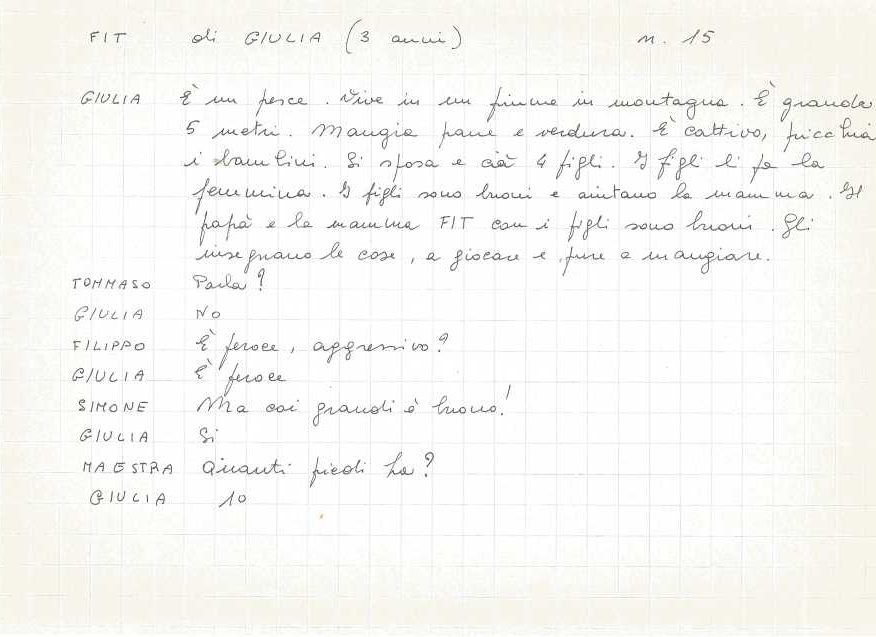 FIT di GIULIA (3 anni) n. 15
GIULIA È un pesce. Vive in un fiume in montagna. È grande
5 metri. Mangia pane e verdura. È cattivo, picchia
i bambini. Si sposa e ha 4 figli. I figli li fa la
femmina. I figli sono buoni e aiutano la mamma. Il
papà e la mamma FIT con i figli sono buoni. Gli
insegnano le cose, a giocare e pure a mangiare.
TOMMASO Parla?
GIULIA No
FILIPPO È feroce, aggressivo?
GIULIA È feroce
SIMONE Ma coi grandi è buono!
GIULIA Si
MAESTRA Quanti piedi ha?
GIULIA 10